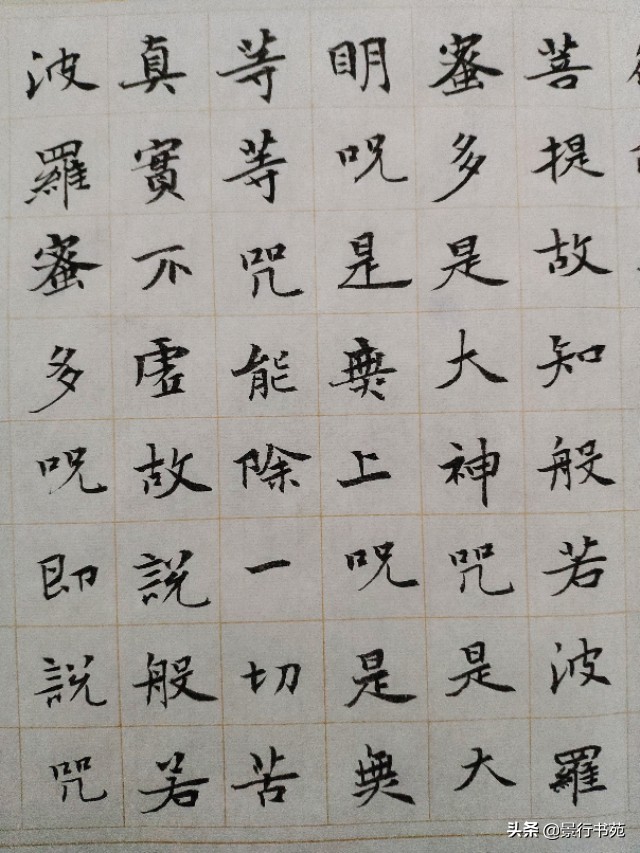 菩提故知般若波羅
蜜多是大神咒是大
明呪是無上呪是無
等等咒能除一切苦
真實不虛故說般若
波羅蜜多呪即說咒
头条 @景行书苑